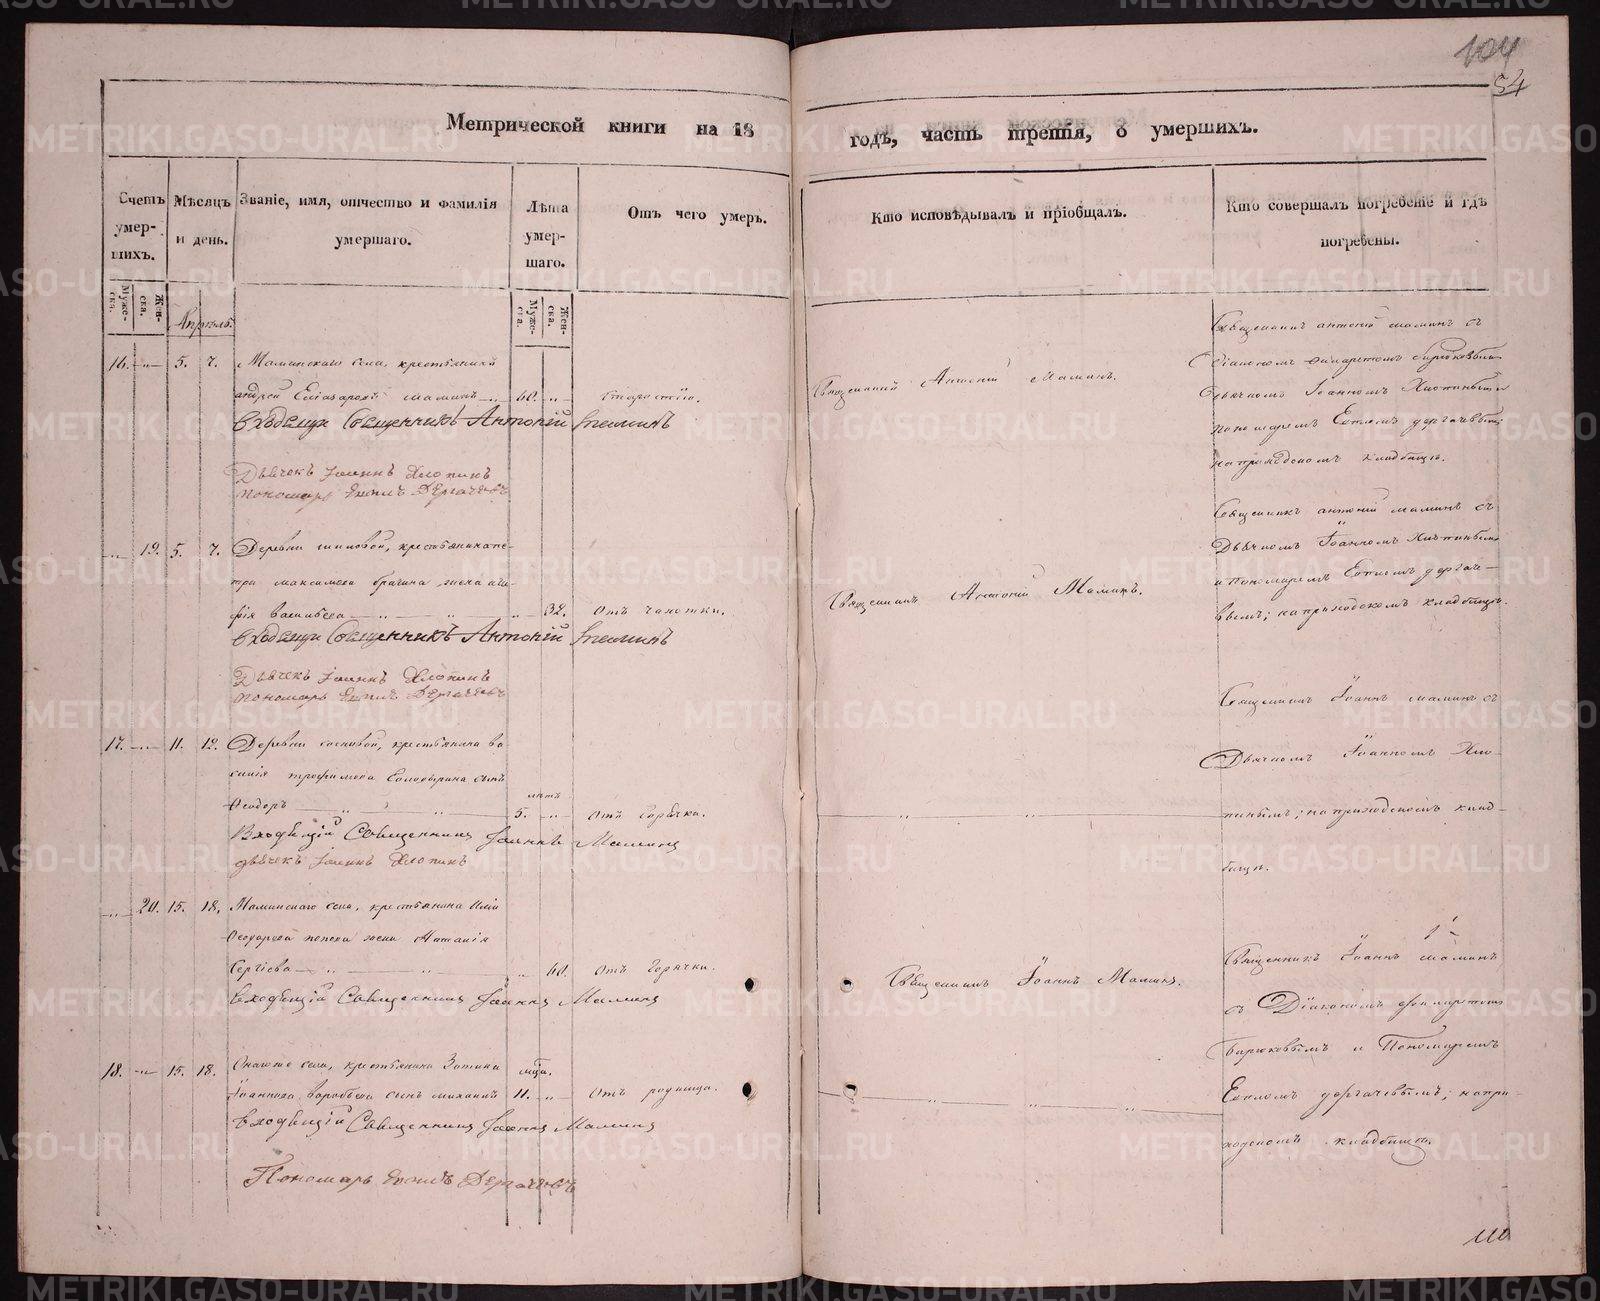 104
54
Метрической книги на 18
годъ, часть третія, о умершихъ.
Счетъ умер-шихъ.
Мѣсяцъ и день.
Званіе, имя, отчество и фамилія умершаго.
Лѣта умер-шаго.
Отъ чего умеръ.
Кто исповѣдывалъ и пріобщалъ.
Кто совершалъ погребеніе и гдѣ погребены.
Муже-ска.
Жен-ска.
Муже-ска.
Жен-ска.
Апрѣль.
16. 5. 7. Маминскаго села, крестьянинъ
Андрей маминъ 60. старостію.
Входящій Священникъ Антоній Маминъ
Дьячекъ Іоаннъ Хлопинъ
Пономарь Дергачевъ
Священникъ Антоній Маминъ.
Священникъ антоній маминъ съ
Діакономъ Бирюковымъ
Дьячкомъ Іоанномъ
пономаремъ дергачевымъ
на приходскомъ кладбищѣ.
19. 5. 7. Деревни шиловой, крестьянина пе-
тра максимова брагина жена ага-
фія васильева 32. отъ чахотки.
Входящій Священникъ Антоній Маминъ
Дьячекъ Іоаннъ Хлопинъ
Пономарь Дергачевъ
Священникъ Антоній Маминъ.
Священникъ антоній маминъ съ
Дьячкомъ Іоанномъ
и пономаремъ дергаче-
вымъ; на приходскомъ кладбищѣ.
17. 11. 12. Деревни сосновой, крестьянина ва-
силія трофимова сынъ
Ѳеодоръ 5. отъ горячки.
лѣтъ
Входящій Священникъ Іоаннъ Маминъ
дьячекъ Іоаннъ Хлопинъ
Священникъ Іоаннъ маминъ съ
Дьячкомъ Іоанномъ Хло-
пинымъ; на приходскомъ клад-
бищѣ.
20. 15. 18. Маминскаго села, крестьянина
Ѳеодорова попова жена Наталія
Сергіева 60. отъ горячки.
Входящій Священникъ Іоаннъ Маминъ
Священникъ Іоаннъ Маминъ.
Священникъ Іоаннъ маминъ
съ Діакономъ филаретомъ
Бирюковымъ и Пономаремъ
дергачевымъ; на при-
ходскомъ кладбищѣ.
18. 15. 18. Онагоже села, крестьянина
Іоаннова воробьева сынъ михаилъ 11. отъ родимца.
Входящій Священникъ Іоаннъ Маминъ
Пономарь Дергачевъ
METRIKI.GASO-URAL.RU